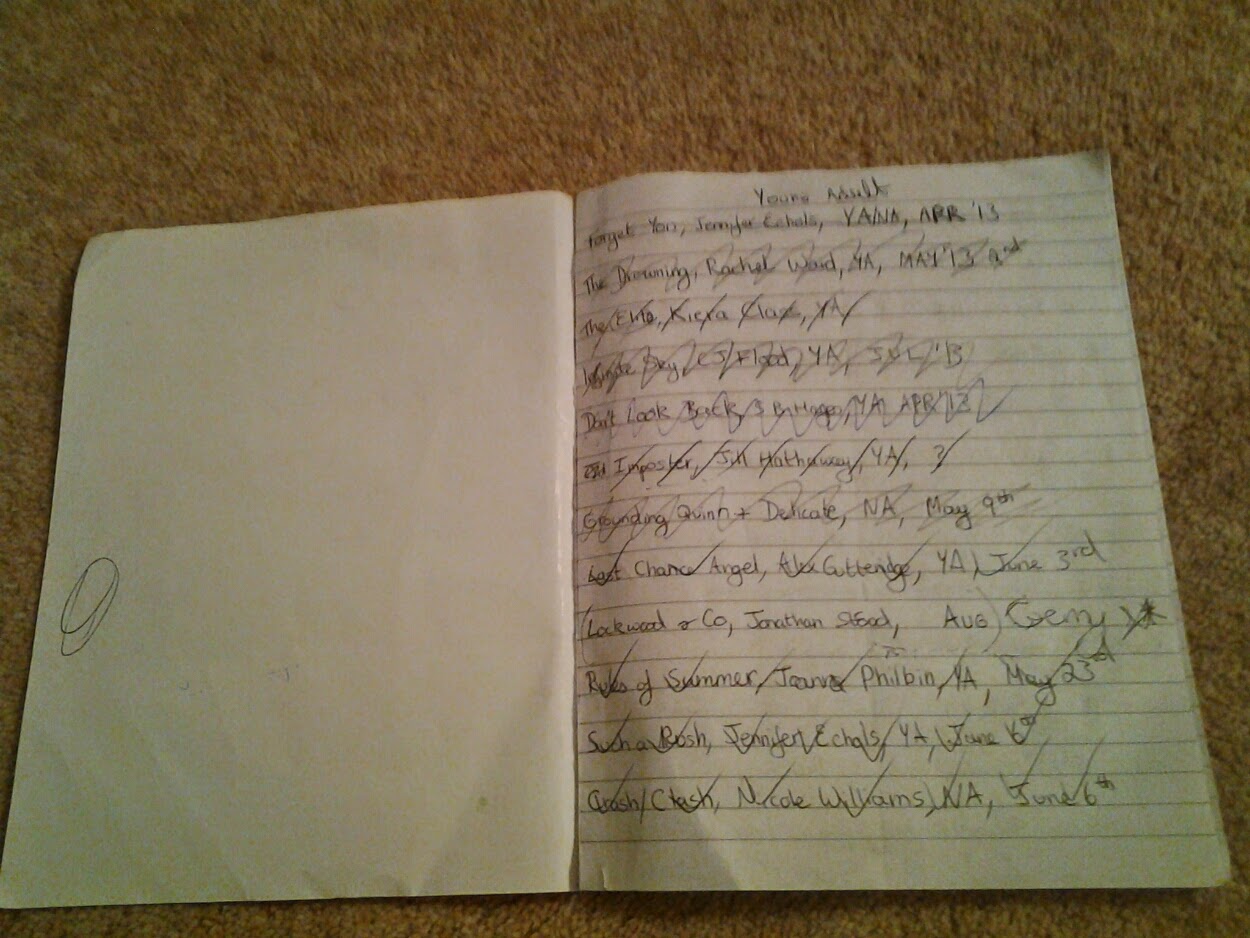 Young Adult
Forget You, Jennifer Echols, YA/NA, APR '13
The Drowning, Rachel Ward, YA, MAY '13 2nd
The Elite, Kiera Class, YA
Infinite Sky, CJ Flood, YA, JUL '13
Don't Look Back, YA APR '13
Imposter, Jill Hathaway, YA, ?
Grounding Quinn + Delicate, NA, May 9th
Last Chance Angel, Alex Gutteridge, YA, June 3rd
(Lockwood & Co, Jonathan Stroud, AUG) Gerry
Rules of Summer, Joanna Philbin, YA, May 23rd
Such a Rush, Jennifer Echols, YA, June 6th
Crash/Clash, Nicole Williams, NA, June 6th